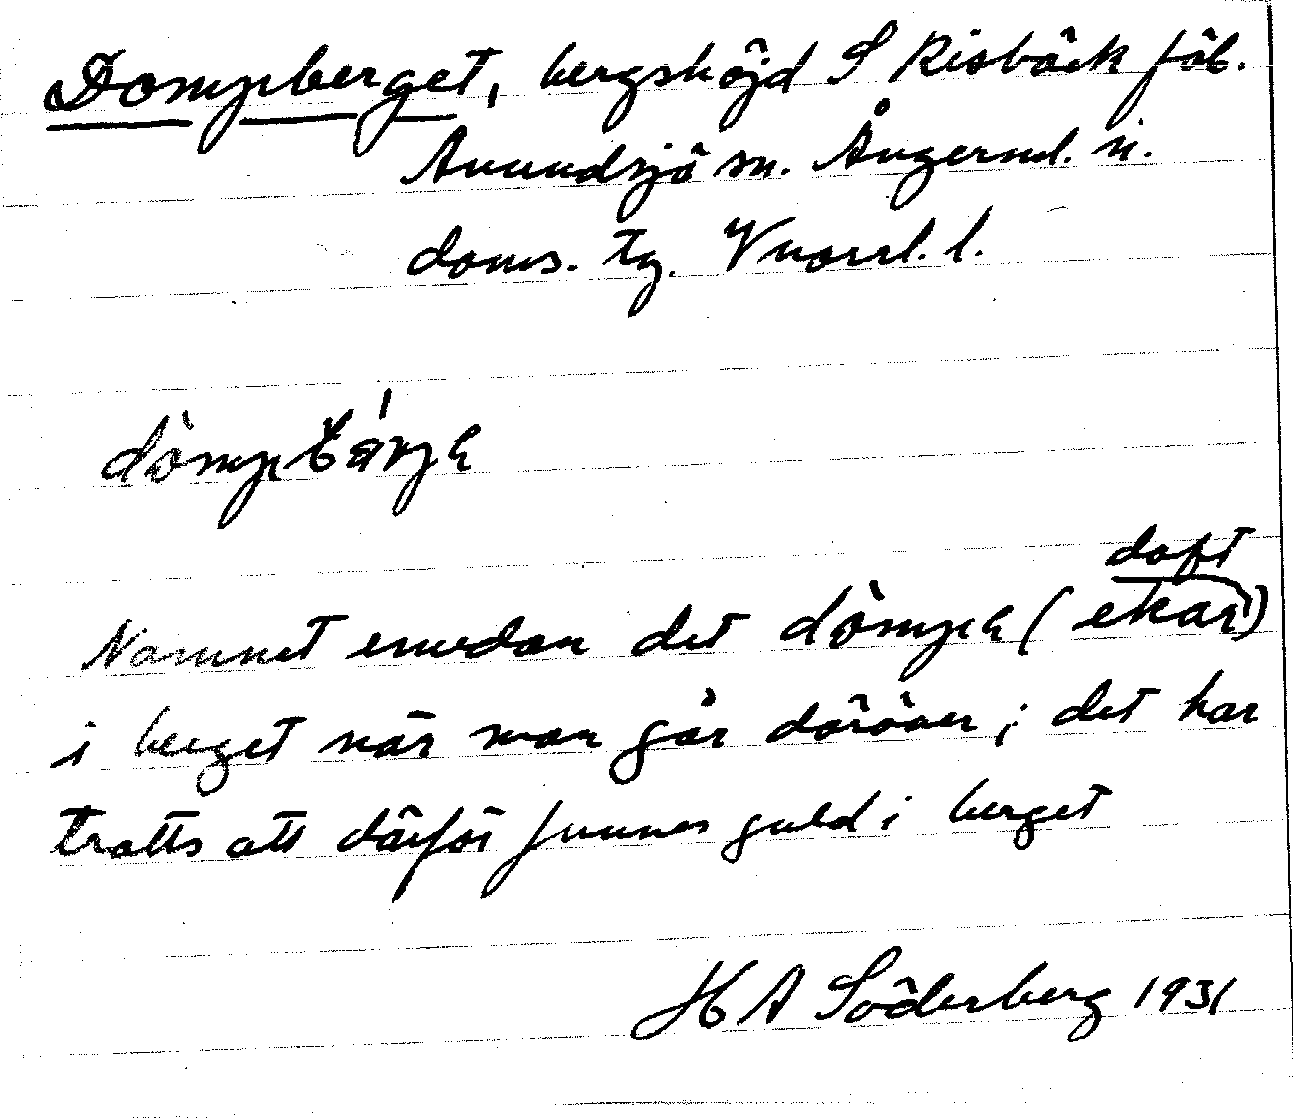 Dompberget, bergshöjd S Risbäck fäb.
Anundsjö sn. Ångerml. n.
doms. tg. Vnorrl. l.
dòmpbärjɐ
daft
Namnet emedan det dòmpɐ (ekar)
i berget när man går däröver; det har
tratts att därför funnes guld i berget
H A Söderberg 1931